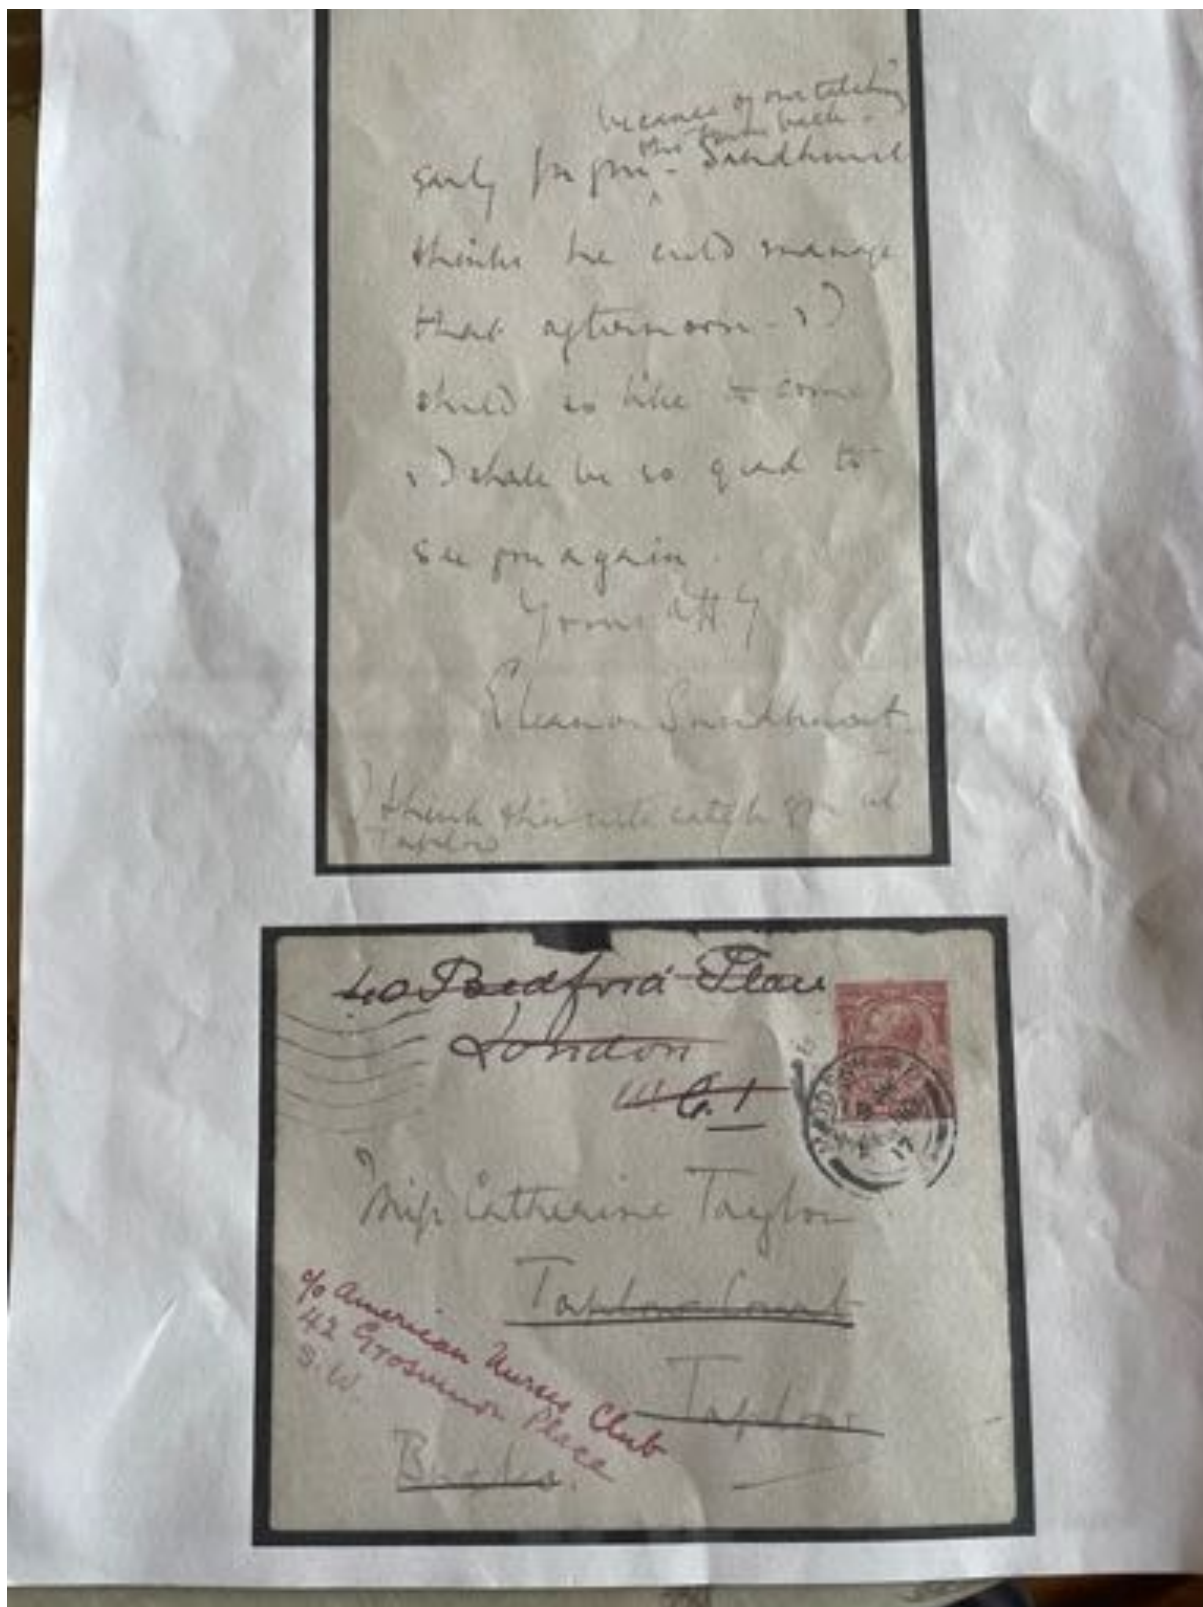 because of our catching
the train back -
early for you - Sandhurst
thinks he could manage
that afternoon - & I
should so like to come
& I shall be so glad to
see you again.
Yours affly
Eleanor Sandhurst.
I think this will catch you at
Taplow
40 Bedford Place
London
W.C.1
Miss Catherine Taylor
Taplow Court
Taplow
Bucks.
c/o American Nurses Club
42 Grosvenor Place
S.W.
17